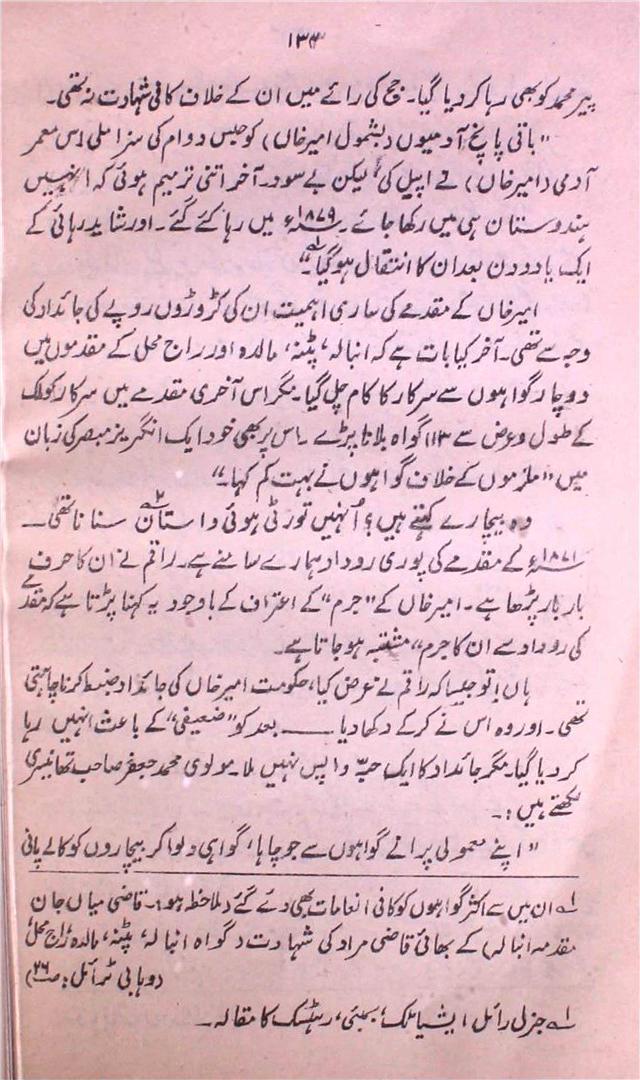 ۱۳۴
پیر محمد کو بھی رہا کر دیا گیا۔ جج کی رائے میں ان کے خلاف کافی شہادت نہ تھی۔
"باقی پانچ آدمیوں (بشمول امیر خاں) کو حبس دوام کی سزا ملی۔ اس معمر
آدمی (امیر خاں) نے اپیل کی، لیکن بے سود۔ آخر اتنی ترمیم ہوئی کہ انہیں
ہندوستان ہی میں رکھا جائے۔ ۱۸۷۹ء میں رہا کئے گئے۔ اور شاید رہائی کے
ایک یا دو دن بعد ان کا انتقال ہو گیا۔"
امیر خاں کے مقدمے کی ساری اہمیت ان کی کڑوڑوں روپے کی جائداد کی
وجہ سے تھی۔ آخر کیا بات ہے کہ انبالہ، پٹنہ، مالدہ اور راج محل کے مقدموں میں
دو چار گواہوں سے سرکار کا کام چل گیا۔ مگر اس آخری مقدمے میں سرکار کو ملک
کے طول و عرض سے ۱۱۳ گواہ بلانا پڑے۔ اس پر بھی خود ایک انگریز مبصر کی زبان
میں "ملزموں کے خلاف گواہوں نے بہت کم کہا۔"
وہ بیچارے کہتے ہیں؟ اُنہیں تو رٹی ہوئی داستان سنانا تھی۔
۱۸۷۱ء کے مقدمے کی پوری روداد ہمارے سامنے ہے۔ راقم نے ان کا حرف
بار بار پڑھا ہے۔ امیر خاں کے "جرم" کے اعتراف کے باوجود یہ کہنا پڑتا ہے کہ مقدمے
کی روداد سے ان کا جرم" مشتبہ ہو جاتا ہے۔
ہاں! تو جیسا کہ راقم نے عرض کیا، حکومت امیر خاں کی جائداد ضبط کرنا چاہتی
تھی۔ اور وہ اس نے کر کے دکھا دیا ـــــ بعد کو "ضعیفی" کے باعث انہیں رہا
کر دیا گیا۔ مگر جائداد کا ایک حبّہ واپس نہیں ملا۔ مولوی محمد جعفر صاحب تھانیسری
لکھتے ہیں:۔
"اپنے معمولی پرانے گواہوں سے جو چاہا، گواہی دلوا کر بیچاروں کو کالے پانی
؎ ان میں سے اکثر گواہوں کو کافی انعامات بھی دئے گئے (ملاحظہ ہو:۔ قاضی میاں جان
مقدمہ انبالہ) کے بھائی قاضی مراد کی شہادت (گواہ انبالہ، پٹنہ، مالدہ، راج محل
(وہابی ٹرائل: ص۲۶)
؎ جرنل رائل ایشیاٹک، بمبئی، رہٹسک کا مقالہ۔